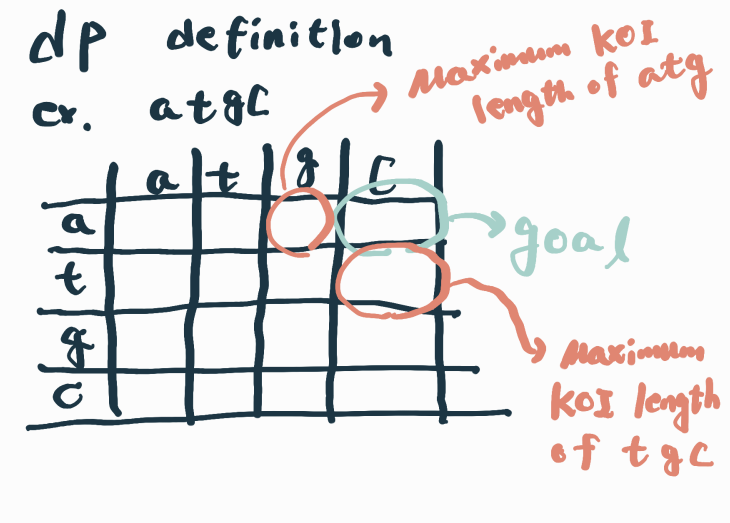 dp definition
ex. atgc
Maximum KOI
length of atg
a t g c
a
goal
t
g
Maximum
KOI length
of tgc
c